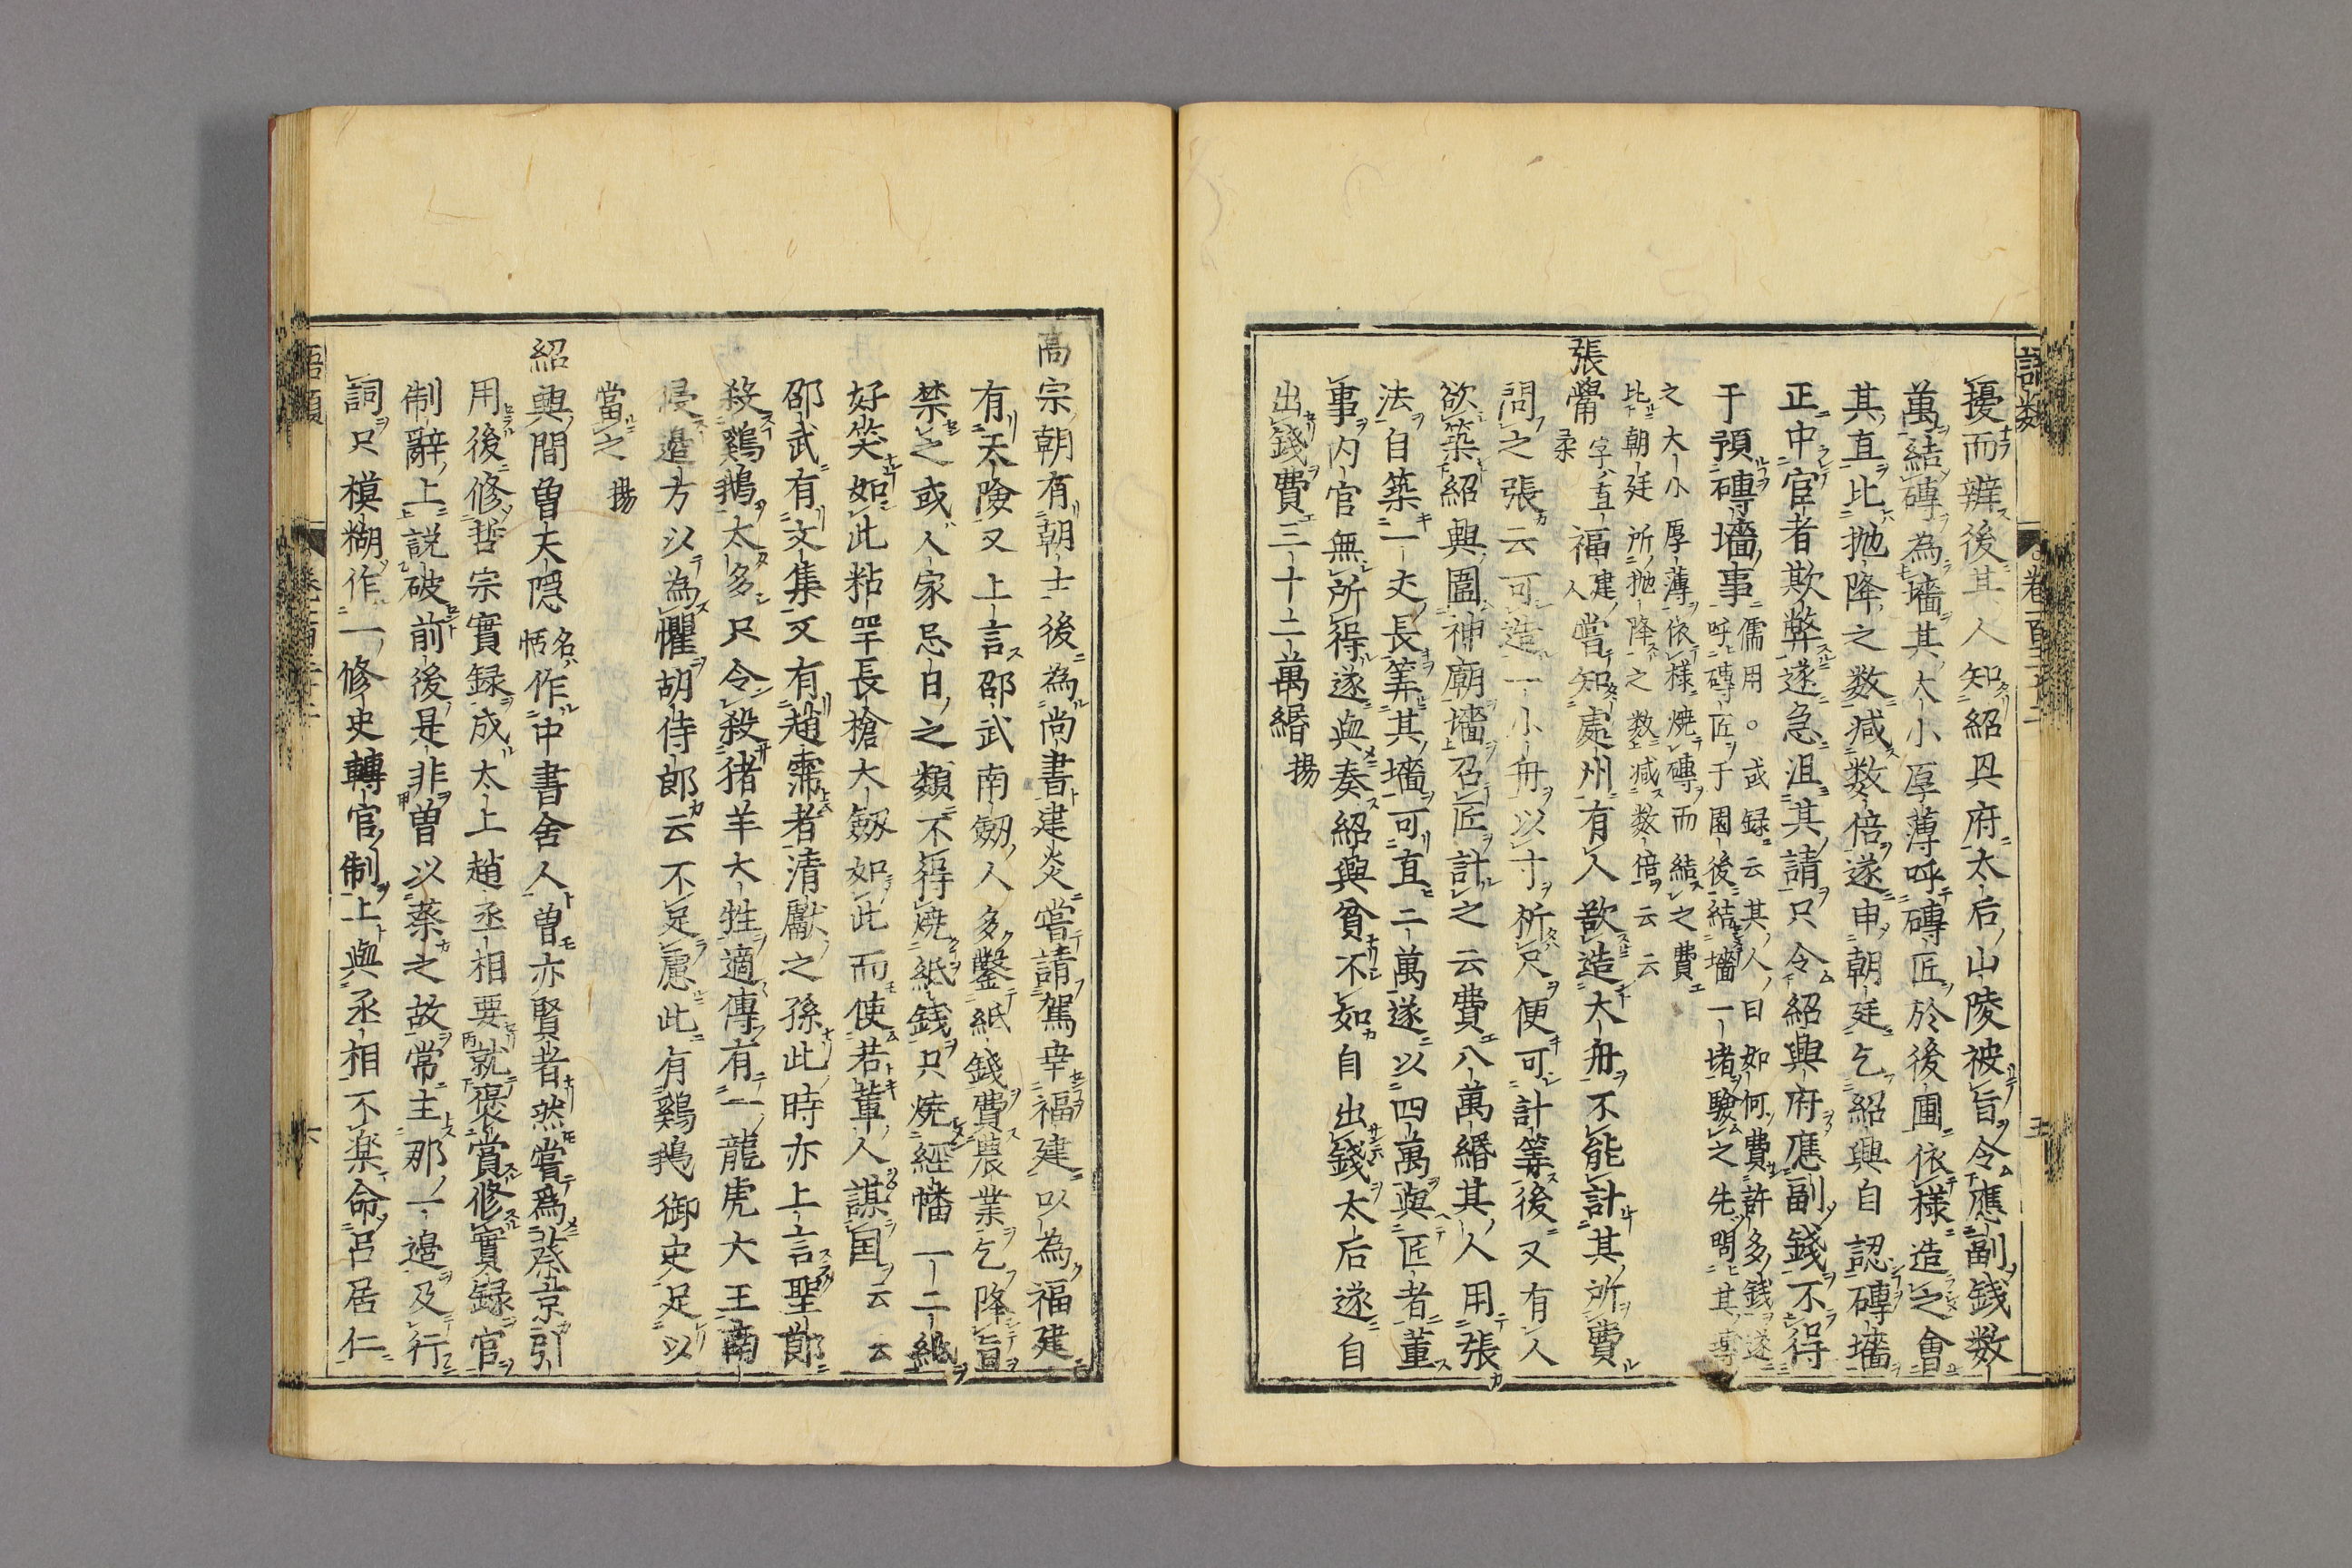 語類 卷一百三十二 五
擾而辦後其人知紹興府太后山陵被旨令應副錢數
萬結磚為墻其大小厚薄呼磚匠於後圃依樣造之會
其直比拋降之数减数倍遂申朝廷乞紹興自認磚墻
正中官者欺弊遂急沮其請只令紹興府應副錢不得
于預磚墻事
儒用○或録云其人曰如何費許多錢遂
呼磚匠于園後結墻一堵驗之先問其
之大小厚薄依樣焼磚而結之費
比朝廷所拋降之数减数倍云云
張觷字直柔福建人嘗知處州有人欲造大舟不能計其所費
問之張云可造一小舟以寸折尺便可計筭後又有人
欲築紹興圜神廟墻召匠計之云費八萬緡其人用張
法自築一丈長筭其墻可直二萬遂以四萬與匠者董
事内官無所得遂與奏紹興貧不如自出錢太后遂自
出錢費三十二萬緡 揚
高宗朝有朝士後為尚書建炎嘗請駕幸福建以為福建
有天險又上言邵武南劒人多鑿紙錢費農業乞降旨
禁之或人家忌日之類不得焼紙錢只焼經幡一二紙
好笑如此粘罕長槍大劒如此而使若輩人謀国云云
邵武有文集又有趙霈者清獻之孫此時亦上言聖節
殺鷄鵝太多只令殺猪羊大牲適傳有一龍虎大王南
侵邉方以為懼胡侍郎云不足慮此有鷄鵝御史足以
當之 揚
紹興間曾夫隠名恬作中書舍人曽亦賢者然嘗為蔡京引
用後修哲宗實録成太上趙丞相要就褒賞修實録官
制辭上説破前後是非曽以蔡之故常主那一邉及行
詞只模糊作一修史轉官制上與丞相不楽命呂居仁
語類 卷一百三十二 六